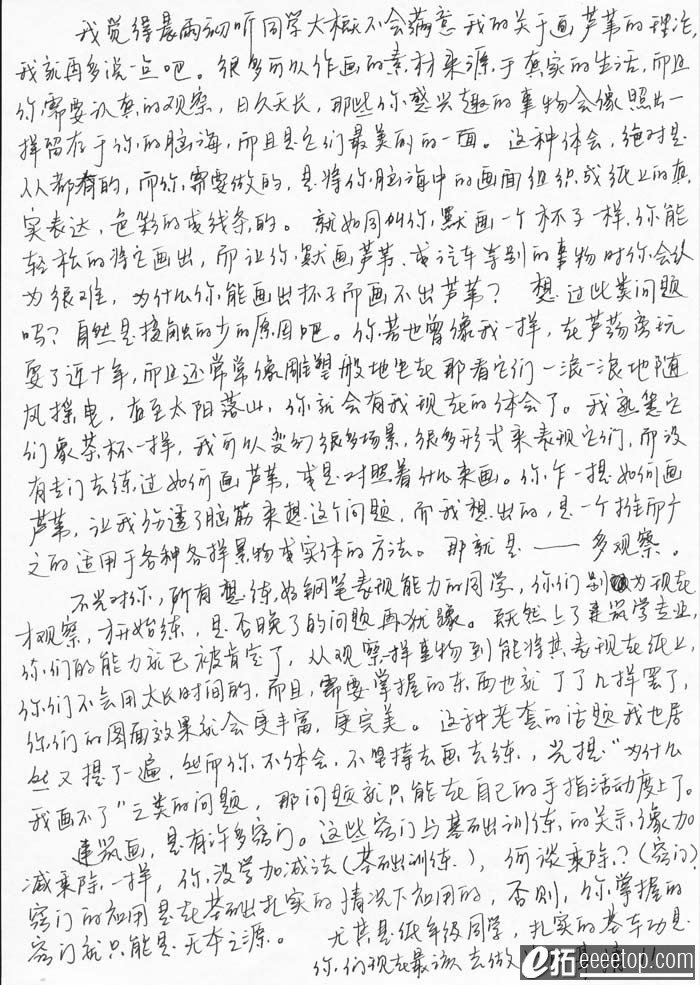 我觉得晨雨初听同学大概不会满意我的关于画芦苇的理论,
我就再多说一点吧。很多可以作画的素材来源于真实的生活,而且
你需要认真的观察,日久天长,那些你感兴趣的事物会像照片一
样留存于你的脑海,而且是它们最美的的一面。这种体会,绝对是
人人都有的,而你需要做的,是将你脑海中的画面组织成纸上的真
实表达,色彩的或线条的。就如同叫你默画一个杯子一样,你能
轻松的将它画出,而让你默画芦苇、或汽车等别的事物时你会认
为很难,为什么你能画出杯子而画不出芦苇?想过此类问题
吗?自然是接触的少的原因吧。你若也曾像我一样,在芦荡旁玩
耍了近十年,而且还常常像雕塑般地坐在那看它们一浪一浪地随
风摇曳,直至太阳落山,你就会有我现在的体会了。我熟悉它
们象茶杯一样,我可以变幻很多场景,很多形式来表现它们,而没
有专门去练过如何画芦苇,或是对照着什么来画。你乍一提如何画
芦苇,让我伤透了脑筋来想这个问题,而我想出的,是一个推而广
之的适用于各种各样景物或实体的方法。那就是——多观察。
不光对你,所有想练好钢笔表现能力的同学,你们别为现在
才观察,才开始练,是否晚了的问题再犹豫。既然上了建筑学专业,
你们的能力就已被肯定了,从观察一样事物到能将其表现在纸上,
你们不会用太长时间的,而且,需要掌握的东西也就了了几样罢了,
你们的图面效果就会更丰富,更完美。这种老套的话题我也居
然又提了一遍,然而你不体会,不坚持去画去练,光提"为什么
我画不了"之类的问题,那问题就只能在自己的手指活动度上了。
建筑画,是有许多窍门。这些窍门与基础训练的关系,像加
减乘除一样,你没学加减法(基础训练),何谈乘除?(窍门)
窍门的知用是在基础扎实的情况下知用的,否则,你掌握的
窍门就只能是无本之源。尤其是低年级同学,扎实的基本功是
你们现在最该去做
e拓 eeeetop.com